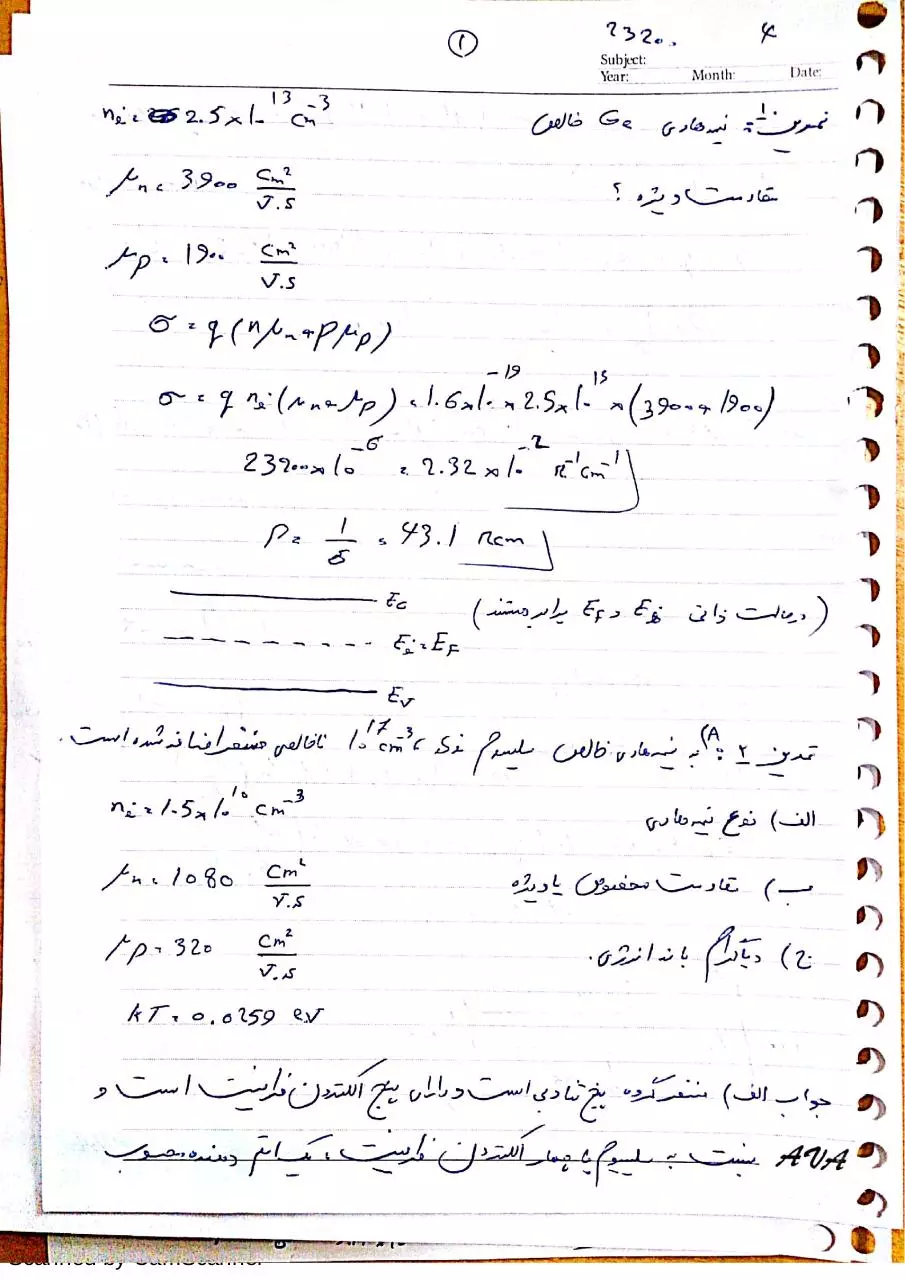 ①
2320..
4
Subject:
Year: Month: Date:
تمرین ۱: نیمه‌هادی Ge خالص nᵢ = 2.5×10¹³ cm⁻³
مقاومت ویژه ؟ μn = 3900 cm²/V.s
μp = 1900 cm²/V.s
σ = q(nμn + pμp)
σ = q nᵢ (μn + μp) = 1.6×10⁻¹⁹ × 2.5×10¹³ × (3900 + 1900)
23200×10⁻⁶ = 2.32×10⁻² Ω⁻¹cm⁻¹
ρ = 1/σ = 43.1 Ωcm
(درحالت ذاتی Ei و EF برابر هستند) Ec
Ei = EF
Ev
تمرین ۲: A) به نیمه‌هادی خالص سیلسیوم نوع 10¹⁷ cm⁻³ ناخالصی فسفر اضافه شده است.
الف) نوع نیمه‌هادی nᵢ = 1.5×10¹⁰ cm⁻³
ب) مقاومت مخصوص یا ویژه μn = 1080 cm²/V.s
ج) دیاگرام باند انرژی. μp = 320 cm²/V.s
kT = 0.0259 eV
جواب الف) فسفر گروه پنج تناوبی است و دارای پنج الکترون ظرفیت است و
نسبت به سلسیوم با چهار الکترون ظرفیت، یک اتم دهنده محسوب
AVA
Scanned by CamScanner